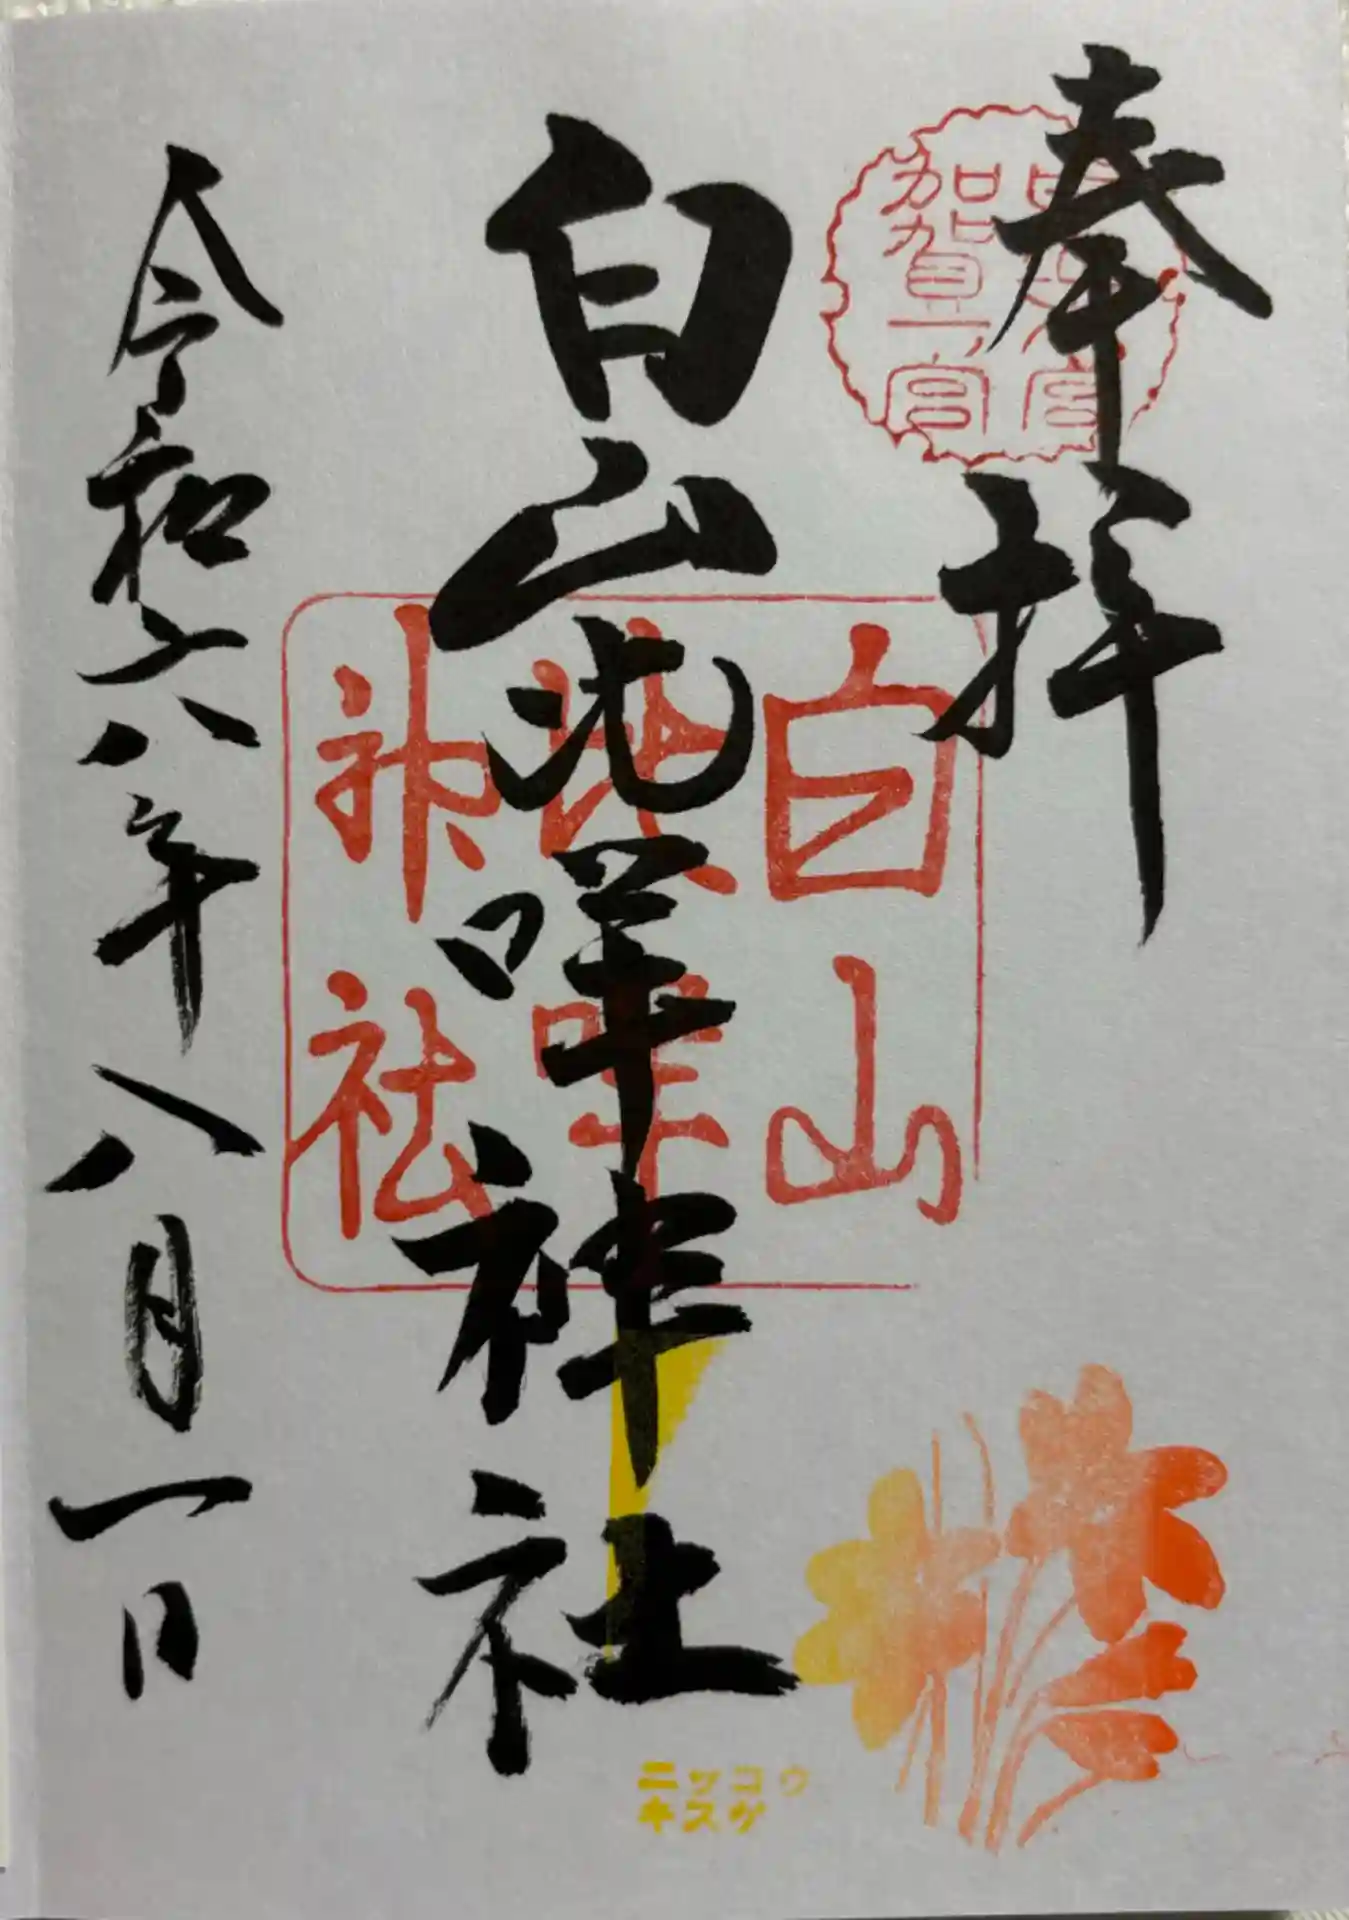 奉拝
加賀一宮
白山比咩神社
白山
比咩
神社
令和六年八月一日
ニッコウ
キスゲ